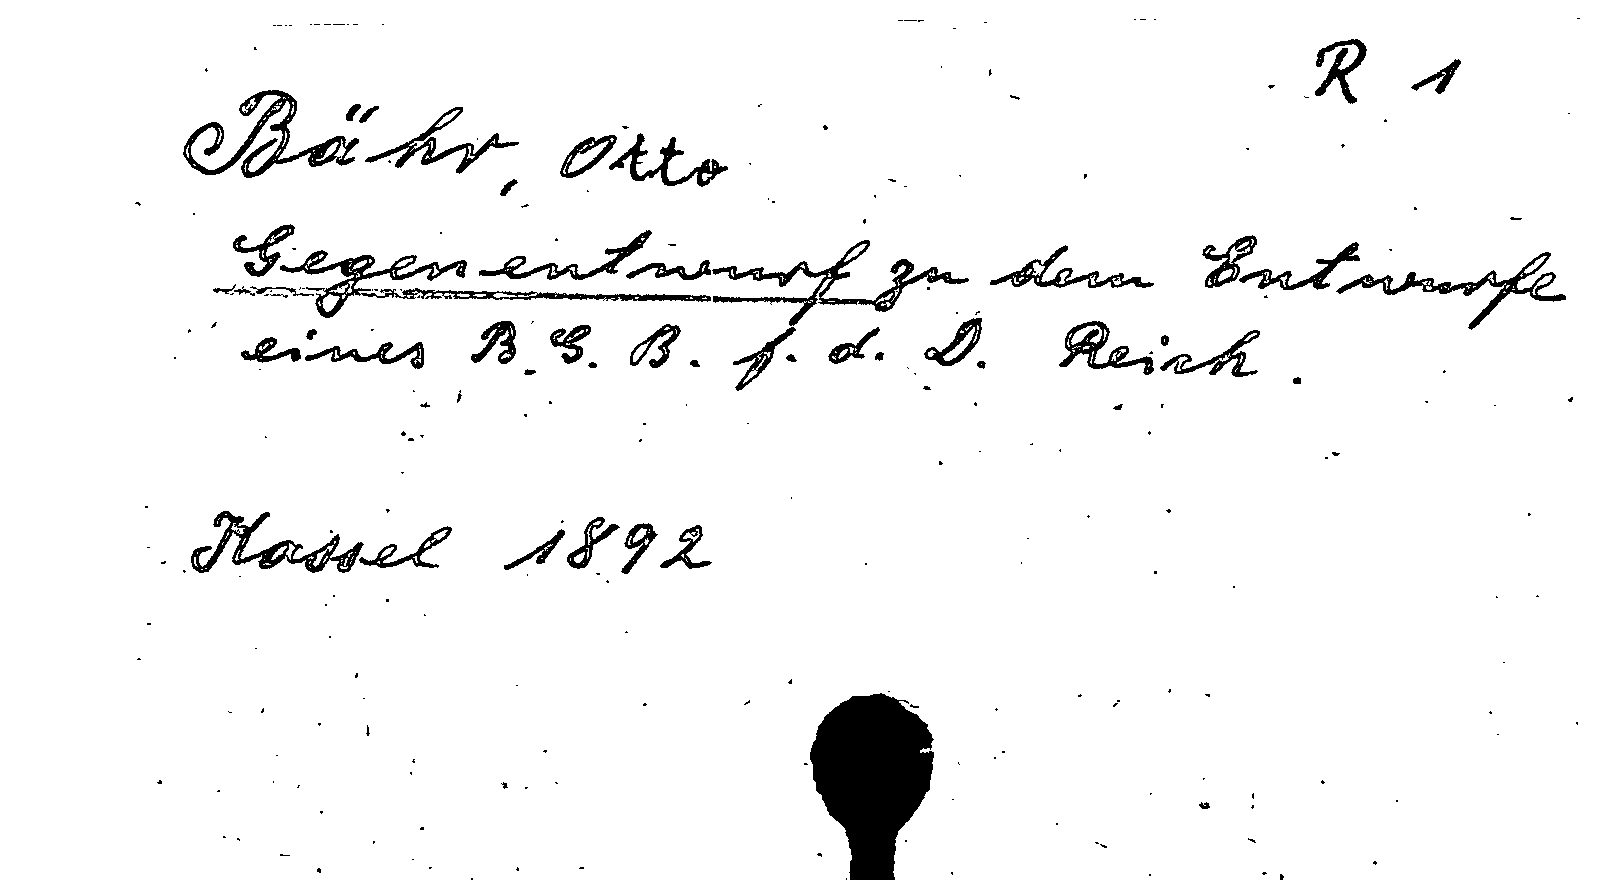 R 1
Bähr, Otto
Gegenentwurf zu dem Entwurfe
eines B.G.B. f. d. D. Reich.
Kassel 1892